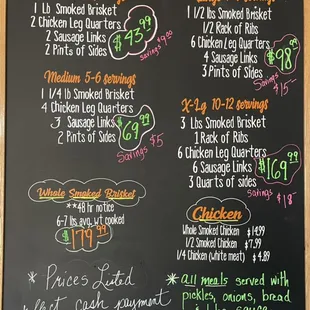 1 Lb Smoked Brisket
2 Chicken Leg Quarters
2 Sausage Links
2 Pints of Sides
$43.99
Savings $9.00
Medium 5-6 servings
1 1/4 lb Smoked Brisket
4 Chicken Leg Quarters
3 Sausage Links
2 Pints of Sides
$69.99
Savings $5
Whole Smoked Brisket
**48 hr notice
6-7 lbs. avg. wt cooked
$179.99
* Prices Listed
cash payment
1 1/2 lbs Smoked Brisket
1/2 Rack of Ribs
6 Chicken Leg Quarters
4 Sausage Links
3 Pints of Sides
$98.99
Savings $15
X-Lg 10-12 servings
3 Lbs Smoked Brisket
1 Rack of Ribs
6 Chicken Leg Quarters
6 Sausage Links
3 Quarts of sides
$169.99
Savings $18
Chicken
Whole Smoked Chicken $14.99
1/2 Smoked Chicken $7.99
1/4 Chicken (white meat) $4.89
* all meals served with
pickles, onions, bread